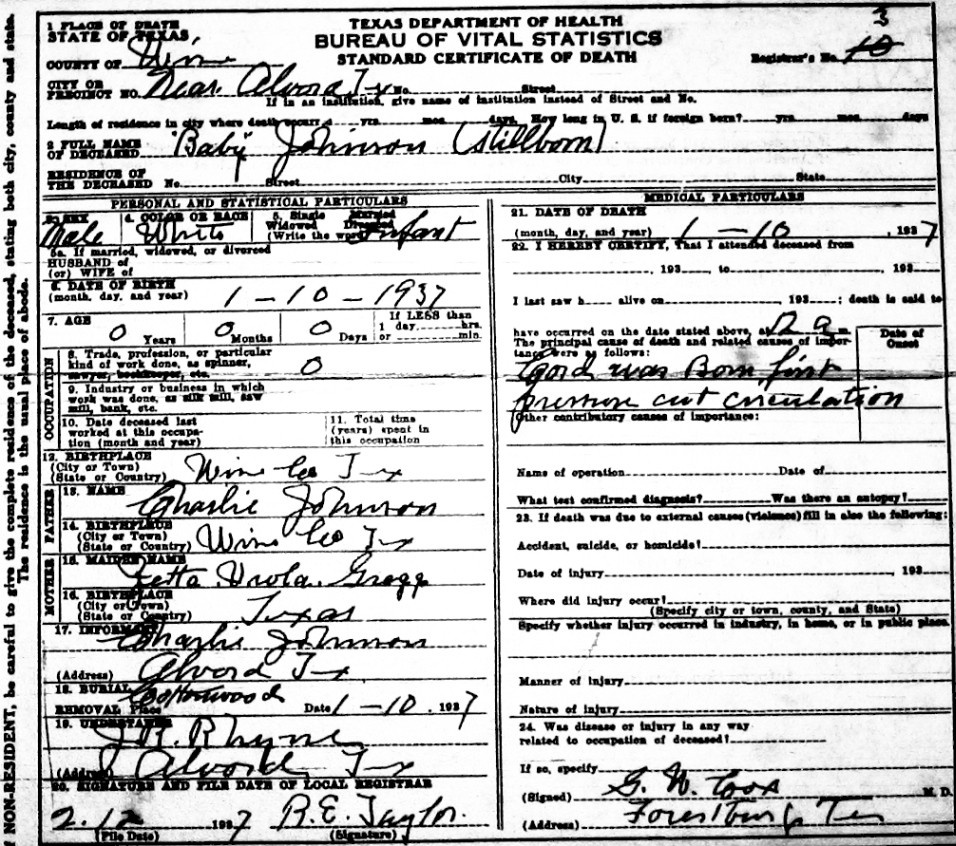 3
TEXAS DEPARTMENT OF HEALTH
BUREAU OF VITAL STATISTICS
STANDARD CERTIFICATE OF DEATH
Registrar's No. 10
1 PLACE OF DEATH
STATE OF TEXAS
COUNTY OF Wise
CITY OR PRECINCT NO. Near Alvord Tx No. Street
If in an institution, give name of institution instead of Street and No.
Length of residence in city where death occurred yrs. mos. days. How long in U. S. if foreign born? yrs. mos. days
2 FULL NAME OF DECEASED "Baby" Johnson (Stillborn)
RESIDENCE OF THE DECEASED No. Street City State
PERSONAL AND STATISTICAL PARTICULARS
3. SEX Male
4. COLOR OR RACE White
5. Single Married Widowed Divorced (Write the word) Infant
5a. If married, widowed, or divorced
HUSBAND of
(or) WIFE of
6. DATE OF BIRTH
(month, day, and year) 1-10-1937
7. AGE 0 Years 0 Months 0 Days If LESS than 1 day hrs. or min.
OCCUPATION
8. Trade, profession, or particular
kind of work done, as spinner, 0
sawyer, bookkeeper, etc.
9. Industry or business in which
work was done, as silk mill, saw
mill, bank, etc.
10. Date deceased last
worked at this occupa-
tion (month and year)
11. Total time
(years) spent in
this occupation
12. BIRTHPLACE
(City or Town)
(State or Country) Wise Co Tx
FATHER
13. NAME Charlie Johnson
14. BIRTHPLACE
(City or Town)
(State or Country) Wise Co Tx
MOTHER
15. MAIDEN NAME Gregg
16. BIRTHPLACE
(City or Town)
(State or Country) Texas
17. INFORMANT Charlie Johnson
(Address) Alvord Tx
18. BURIAL
REMOVAL Place Date 1-10, 1937
19. UNDERTAKER J.R. Rhyne
(Address) Alvord Tx
20. SIGNATURE AND FILE DATE OF LOCAL REGISTRAR
2-12 1937 R.E. Taylor.
(File Date) (Signature)
MEDICAL PARTICULARS
21. DATE OF DEATH
(month, day, and year) 1-10, 1937
22. I HEREBY CERTIFY, That I attended deceased from
, 193 , to , 193
I last saw h alive on , 193 ; death is said to
have occurred on the date stated above, at 12 a m.
The principal cause of death and related causes of impor-
tance were as follows:
Date of Onset
Cord was Born first
pressure cut circulation
Other contributory causes of importance:
Name of operation Date of
What test confirmed diagnosis? Was there an autopsy?
23. If death was due to external causes (violence) fill in also the following:
Accident, suicide, or homicide?
Date of injury , 193
Where did injury occur?
(Specify city or town, county, and State)
Specify whether injury occurred in industry, in home, or in public place.
Manner of injury
Nature of injury
24. Was disease or injury in any way
related to occupation of deceased?
If so, specify
(Signed) M. D.
(Address) Forestburg Tex
NON-RESIDENT, be careful to give the complete residence of the deceased, stating both city, county and state.
The residence is the usual place of abode.